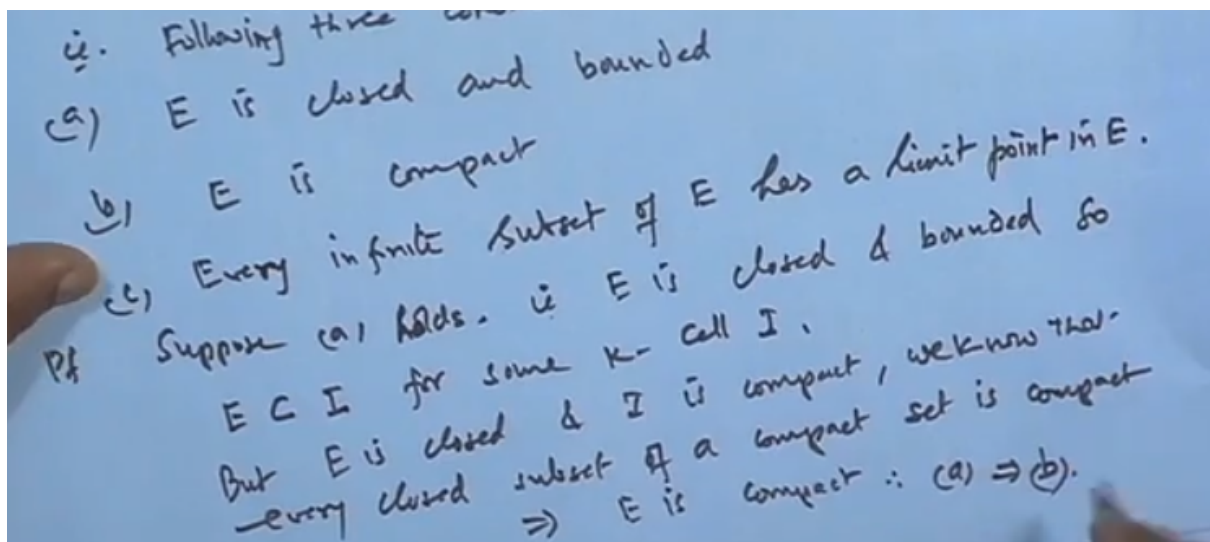 ie. Following three
(a) E is closed and bounded
(b) E is compact
(c) Every infinite subset of E has a limit point in E.
Pf Suppose (a) holds. ie E is closed & bounded so
E ⊂ I for some K- cell I.
But E is closed & I is compact, we know that
every closed subset of a compact set is compact
⇒ E is compact ∴ (a) ⇒ (b).